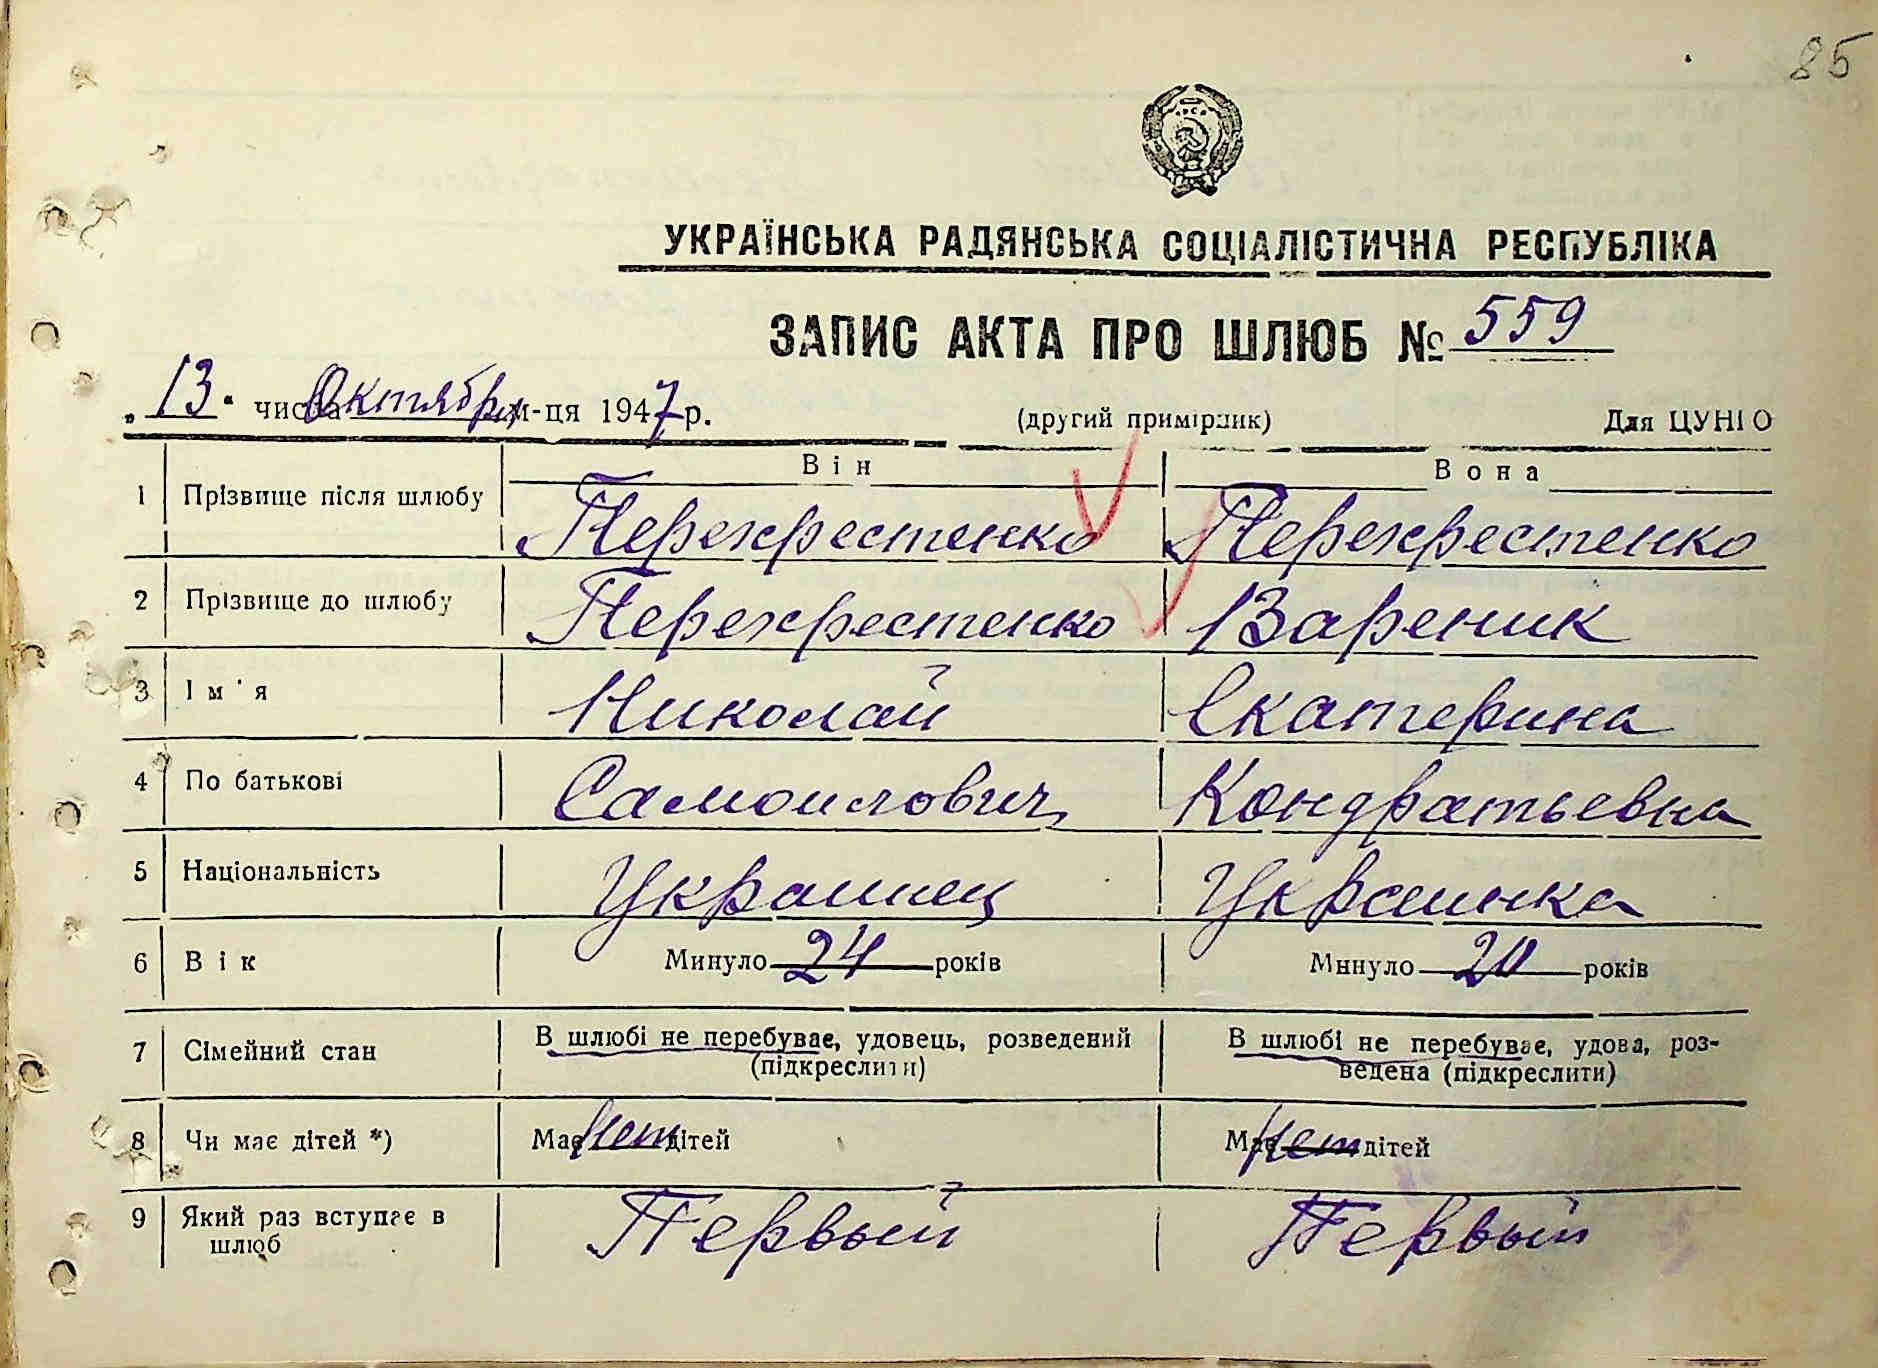 85
УКРАЇНСЬКА РАДЯНСЬКА СОЦІАЛІСТИЧНА РЕСПУБЛІКА
ЗАПИС АКТА ПРО ШЛЮБ № 559
„13“ числа Октября м-ця 1947 р. (другий примірник) Для ЦУНГО
Він Вона
1 Прізвище після шлюбу Перехрестенко Перехрестенко
2 Прізвище до шлюбу Перехрестенко Вареник
3 Ім'я Николай Екатерина
4 По батькові Самоилович Кондратьевна
5 Національність Украинец Украинка
6 Вік Минуло 24 років Минуло 20 років
7 Сімейний стан В шлюбі не перебуває, удовець, розведений В шлюбі не перебуває, удова, роз-
(підкреслити) ведена (підкреслити)
8 Чи має дітей *) Має нет дітей Має нет дітей
9 Який раз вступає в Первый Первый
шлюб